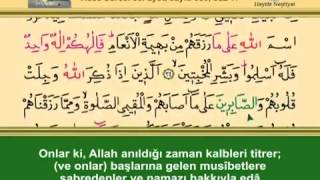 Hayrât Neşriyat
اسْمَ اللّٰهِ عَلٰى مَا رَزَقَهُمْ مِنْ بَهٖيمَةِ الْاَنْعَامِ فَاِلٰهُكُمْ اِلٰهٌ وَاحِدٌ
فَلَهُٓ اَسْلِمُوا وَبَشِّرِ الْمُخْبِتٖينَ ﴿٣٤﴾ اَلَّذٖينَ اِذَا ذُكِرَ اللّٰهُ وَجِلَتْ
قُلُوبُهُمْ وَالصَّابِرٖينَ عَلٰى مَٓا اَصَابَهُمْ وَالْمُقٖيمِي الصَّلٰوةِ وَمِمَّا رَزَقْنَاهُمْ
Onlar ki, Allah anıldığı zaman kalbleri titrer;
(ve onlar) başlarına gelen musîbetlere
sabredenler ve namazı hakkıyla edâ